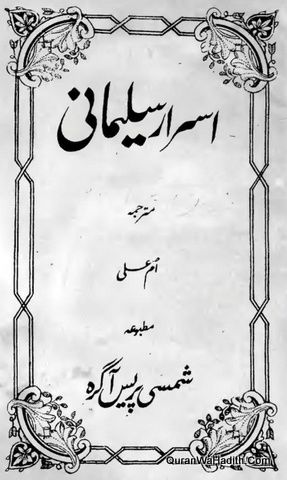 اسرار سلیمانی
مترجمہ
اُم علی
مطبوعہ
شمسی پریس آگرہ
QuranWaHadith.Com